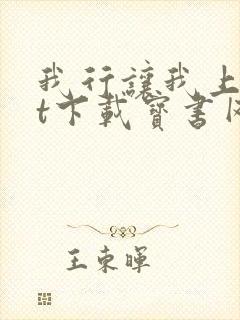 我行讓我上
t下載寶書
王東暉